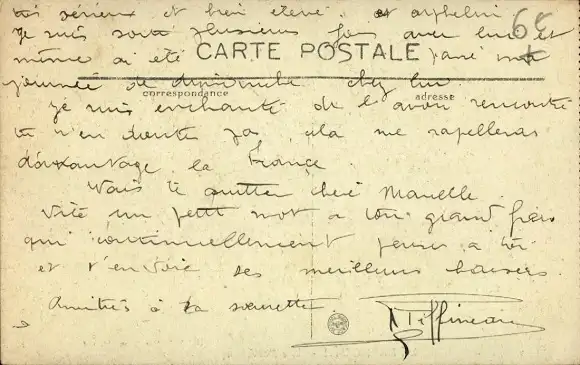 très sérieux et bien élevé et orphelin
Je suis sorti plusieurs fois avec lui et
même ai été passé ma
CARTE POSTALE
journée de dimanche chez lui.
correspondance
adresse
Je suis enchanté de l'avoir rencontré
tu n'en doute pas, cela me rapelleras
davantage la France.
Vais te quitter chere Marcelle.
Vite un petit mot a ton grand frère
qui continuellement pense a toi
et t'envoie ses meilleurs baisers.
Amitiés à ta soeurette.